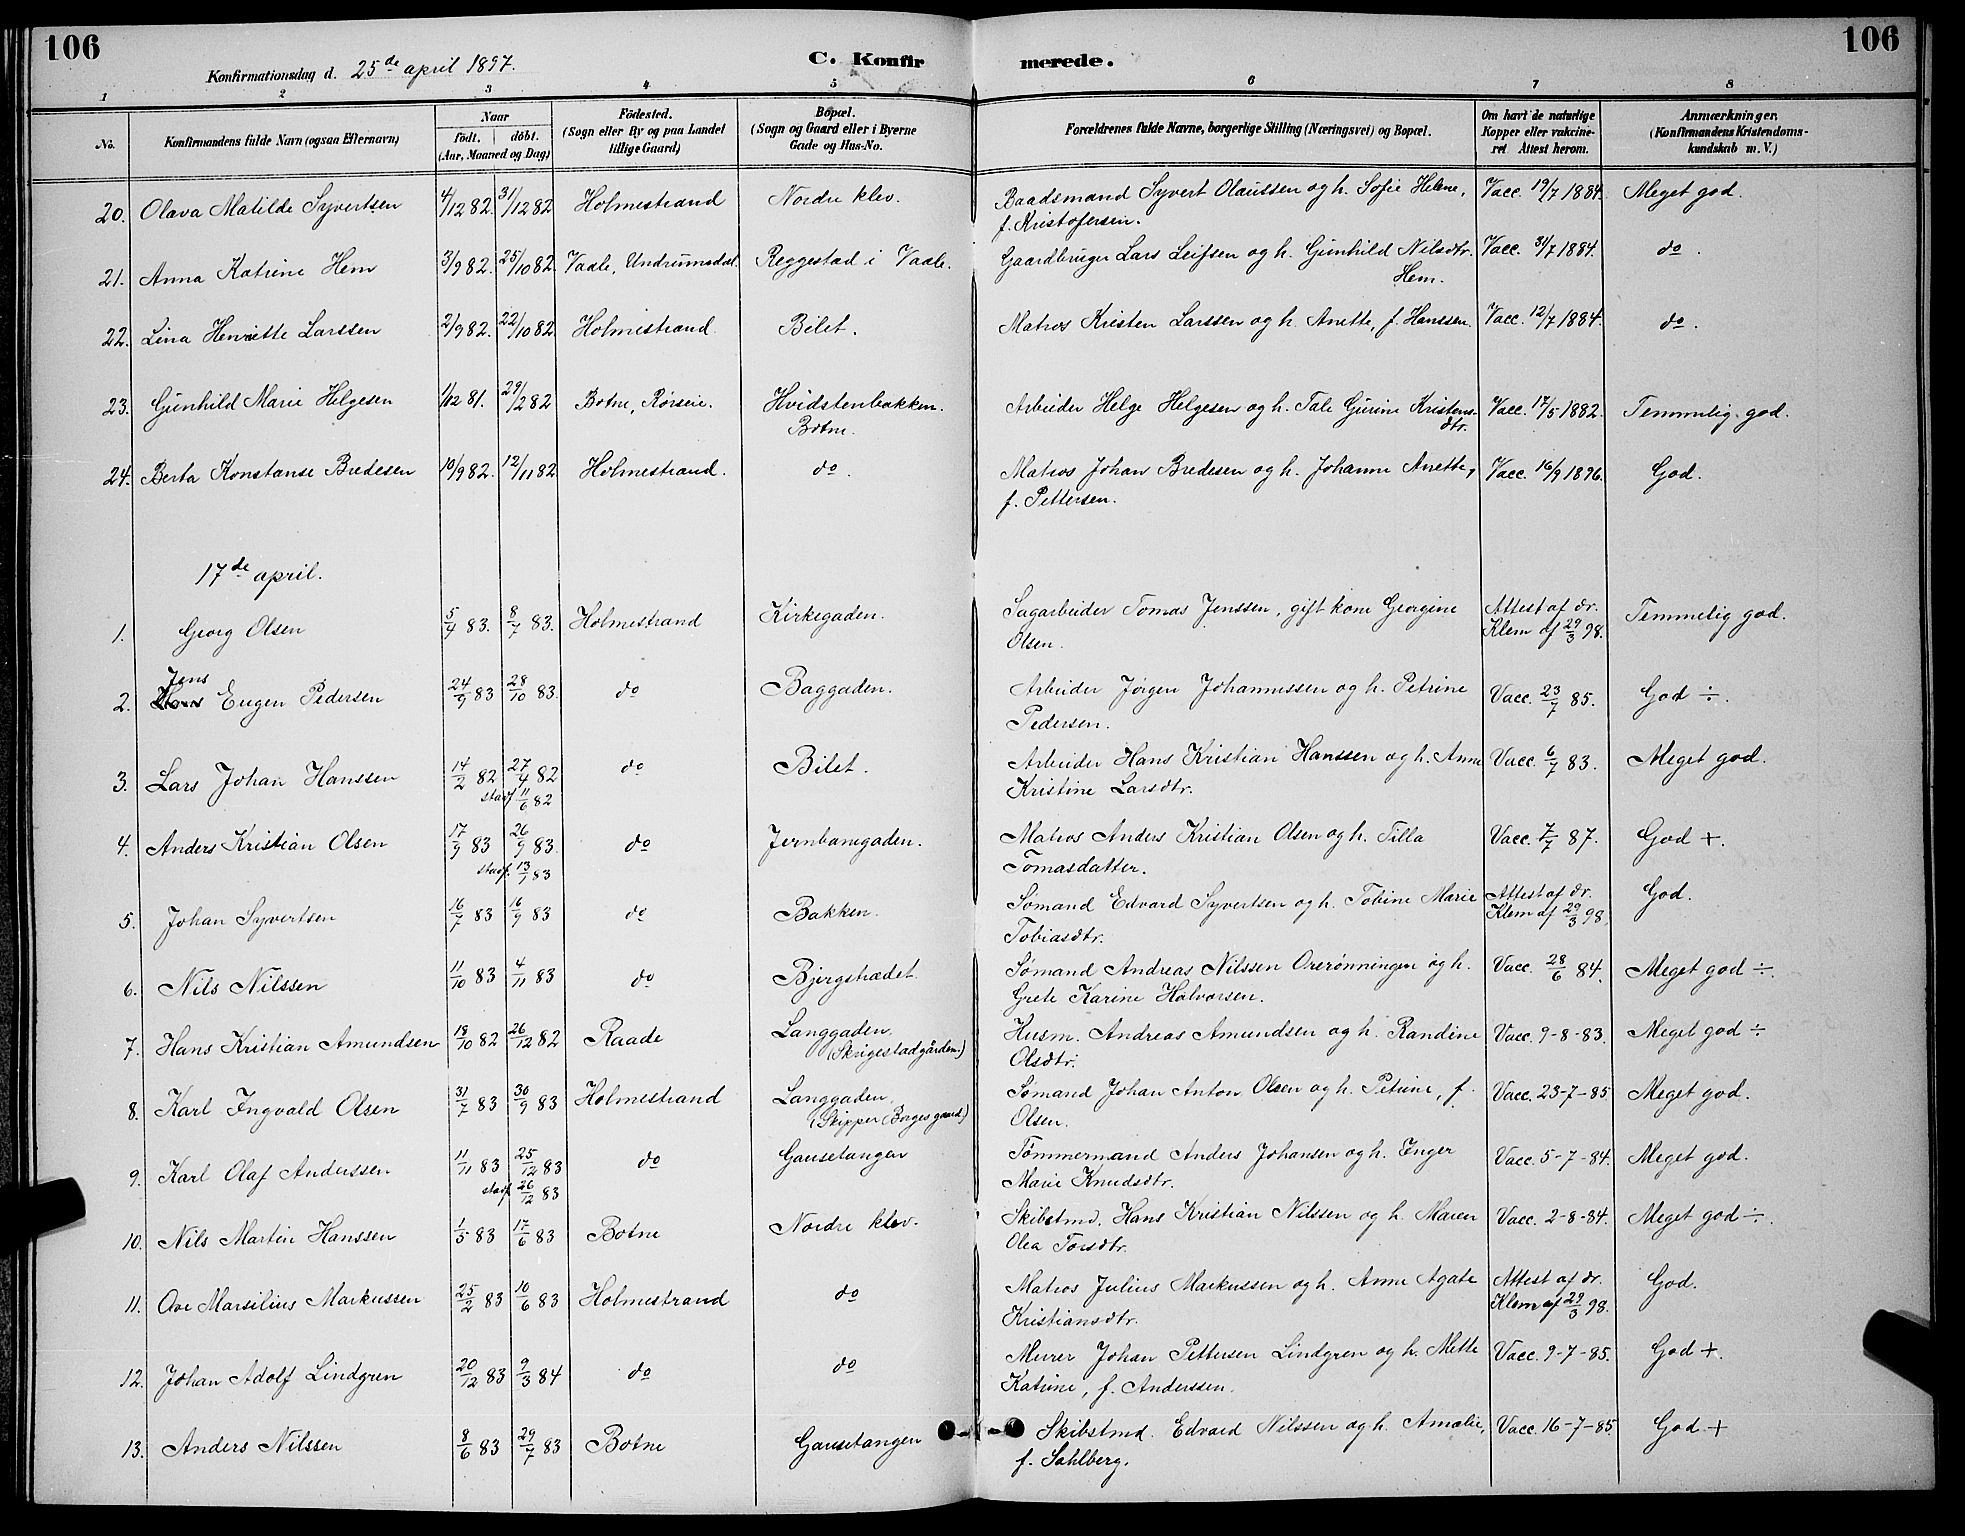 106
Konfirmationsdag d. 25de april 1897.
C. Konfir
merede.
106
1 2 3 4 5 6 7 8
No.
Konfirmandens fulde Navn (ogsaa Efternavn)
Naar
födt. döbt.
(Aar, Maaned og Dag)
Födested.
(Sogn eller By og paa Landet
tillige Gaard)
Bopæl.
(Sogn og Gaard eller i Byerne
Gade og Hus-No.
Forældrenes fulde Navne, borgerlige Stilling (Næringsvei) og Bopæl.
Om havt de naturlige
Kopper eller vakcine-
ret Attest herom.
Anmærkninger.
(Konfirmandens Kristendoms-
kundskab m. V.)
20. Olava Matilde Syvertsen 4/12 82. 31/12 82 Holmestrand Nordre klev. Baadsmand Syvert Olaussen og h. Sofie Helene, Vacc. 19/7 1884. Meget god.
f. Kristofersen.
21. Anna Katrine Hem 3/9 82. 25/10 82. Vaale, Undrumsdal. Reggestad i Vaale. Gaardbruger Lars Leifsen og h. Gunhild Nilsdtr. Vacc. 31/7 1884. do.
Hem.
22. Lina Henriette Larssen 2/9 82. 22/10 82 Holmestrand Bilet. Matros Kristen Larssen og h. Anette, f. Hanssen. Vacc. 12/7 1884. do.
23. Gunhild Marie Helgesen 1/12 81. 29/2 82 Botne, Rørseie. Hvidstenbakken. Arbeider Helge Helgesen og h. Tale Gurine Kristens- Vacc. 17/5 1882. Temmelig god.
Botne. dtr.
24. Berta Konstanse Bredesen 10/9 82. 12/11 82 Holmestrand. do. Matros Johan Bredesen og h. Johanne Anette, Vacc. 16/9 1896. God.
f. Pettersen.
17de april.
1. Georg Olsen 5/4 83. 8/7 83. Holmestrand Kirkegaden. Sagarbeider Tomas Jenssen, gift kone Georgine Attest af dr. Temmelig god.
Olsen. Klem af 29/3 98.
Jens
2. Eugen Pedersen 24/9 83 28/10 83. do Baggaden. Arbeider Jørgen Johannessen og h. Petrine Vacc. 23/7 85. God ÷.
Pedersen.
3. Lars Johan Hanssen 14/2 82 27/4 82 do Bilet. Arbeider Hans Kristian Hanssen og h. Anne Vacc. 6/7 83. Meget god.
stadf. 11/6 82 Kristine Larsdtr.
4. Anders Kristian Olsen 17/9 83 26/9 83. do Jernbanegaden. Matros Anders Kristian Olsen og h. Tilla Vacc. 7/7 87. God +.
stadf. 83 Tomasdatter.
5. Johan Syvertsen 16/7 83 16/9 83 do Bakken. Sømand Edvard Syvertsen og h. Tobine Marie Attest af dr. God.
Tobiasdtr. Klem af 29/3 98.
6. Nils Nilssen 11/10 83 4/11 83 do Bjergstrædet Sømand Andreas Nilssen Orerønningen og h. Vacc. 28/6 84. Meget god ÷.
Grete Karine Halvorsen.
7. Hans Kristian Amundsen 18/10 82 26/12 82 Raade Langgaden, Husm. Andreas Amundsen og h. Randine Vacc. 9-8-83. Meget god ÷
(Skrigestadgården) Olsdtr.
8. Karl Ingvald Olsen 31/7 83 30/9 83 Holmestrand Langgaden, Sømand Johan Anton Olsen og h. Petrine, f. Vacc. 23-7-85. Meget god.
(Skipper Borges gaard) Olsen.
9. Karl Olaf Anderssen 11/11 83 25/12 83 do Gausetangen Tømmermand Anders Johansen og h. Inger Vacc. 5-7-84. Meget god.
stadf. 26/12 83 Marie Knudsdtr.
10. Nils Martin Hanssen 1/5 83 17/6 83 Botne Nordre klev. Skibstmd. Hans Kristian Nilssen og h. Maren Vacc. 2-8-84. Meget god ÷.
Olea Torsdtr.
11. Ove Marsilius Markussen 25/2 83 10/6 83 Holmestrand do Matros Julius Markussen og h. Anne Agate Attest af dr. God.
Kristiansdtr. Klem af 29/3 98.
12. Johan Adolf Lindgren 20/12 83 9/3 84 do do Murer Johan Pettersen Lindgren og h. Mette Vacc. 9-7-85. God +.
Katrine, f. Anderssen.
13. Anders Nilssen 8/6 83 29/7 83 Botne Gausetangen Skibstmd. Edvard Nilssen og h. Amalie, Vacc. 16-7-85 God +
f. Sahlberg.